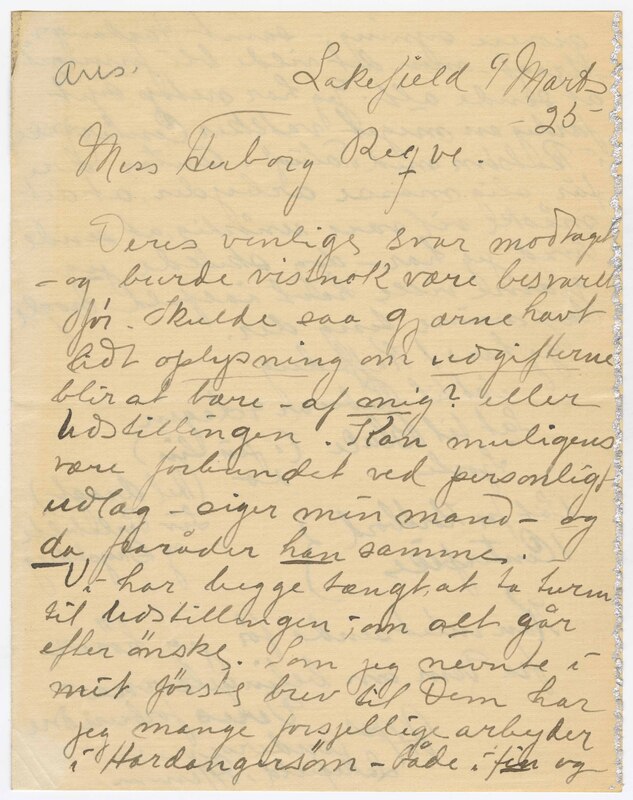 ans.
Lakefield 9 Marts
- 25 -
Miss Herborg Reqve.
Deres venlige svar modtaget
- og burde visnok være besvaret
før. Skulde saa gjærne havt
lidt oplysning om udgifterne
blir at bære - af mig? eller
Udstillingen. Kan muligens
være forbundet ved personligt
udlag - siger min mand - og
da, faråder han samme.
Vi har begge tængt at ta turen
til Udstillingen; om alt går
efter ønske. Som jeg nevnte i
mit første brev til Dem har
jeg mange forsjellige arbeyder
i Hardangersöm - både i fin og